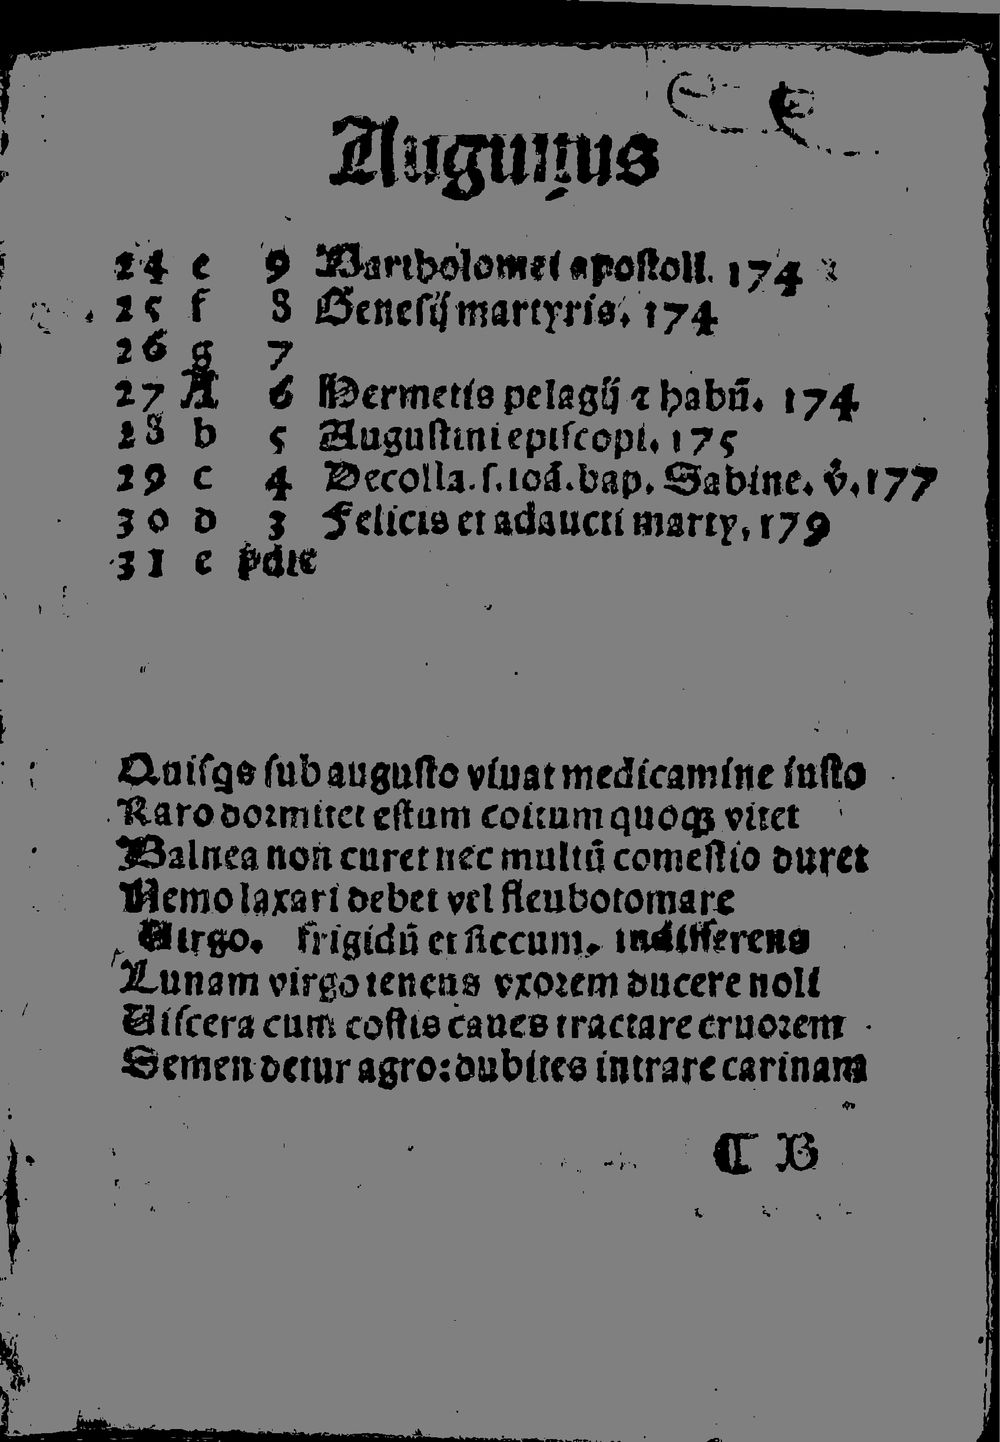 Augustus
24 e 9 Bartholomei apostoli. 174
25 f 8 Genesij martyris. 174
26 g 7
27 A 6 Hermetis pelagij ⁊ habũ. 174
28 b 5 Augustini episcopi. 175
29 c 4 Decolla. s. ioã. bap. Sabine. v̄. 177
30 d 3 Felicis et adaucti marty. 179
31 e pdie
Quisqs sub augusto viuat medicamine iusto
Raro dormitet estum coitum quoqꝫ vitet
Balnea non curet nec multũ comestio duret
Nemo laxari debet vel fleubotomare
Uirgo. frigidũ et siccum. indifferens
Lunam virgo tenens vxorem ducere noli
Uiscera cum costis caues tractare cruorem
Semen detur agro: dubites intrare carinam
B